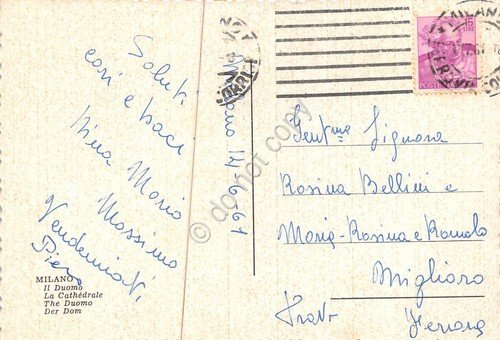 Saluti
cari e baci
Nina Maria
Massimo
Vendemiati
Piero
Milano 14/6/61
MILANO
Il Duomo
La Cathédrale
The Duomo
Der Dom
Gent.me Signora
Rosina Bellini e
Maria-Rosina e Romolo
Migliaro
Ferrara
MILANO
15
LIRE
POSTE
do not copy